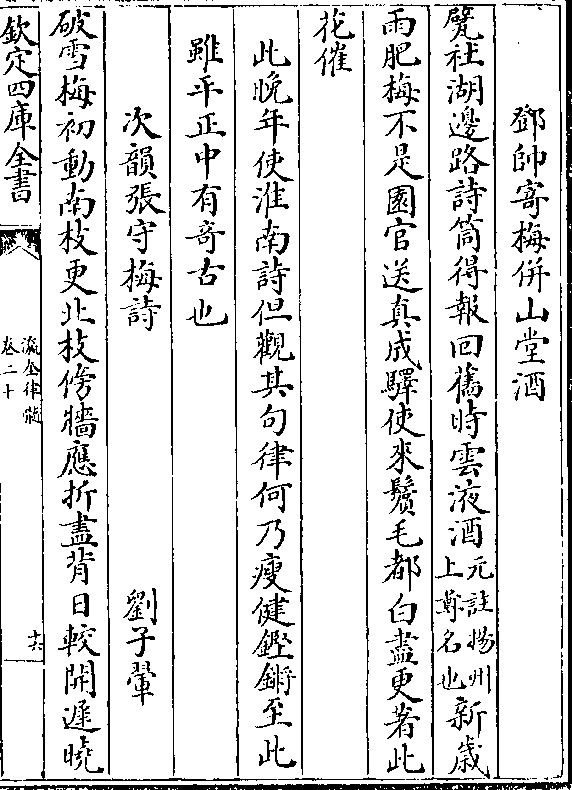 鄧帥寄梅併山堂酒
甓社湖邊路詩筒得報回舊時雲液酒元註揚州上尊名也新歲
雨肥梅不是園官送真成驛使來鬢毛都白盡更著此
花催
此晚年使淮南詩但觀其句律何乃瘦健鏗鏘至此
雖平正中有竒古也
次韻張守梅詩 劉子翬
破雪梅初動南枝更北枝傍牆應折盡背日較開遲曉
欽定四庫全書
瀛奎律髓
卷二十
十六